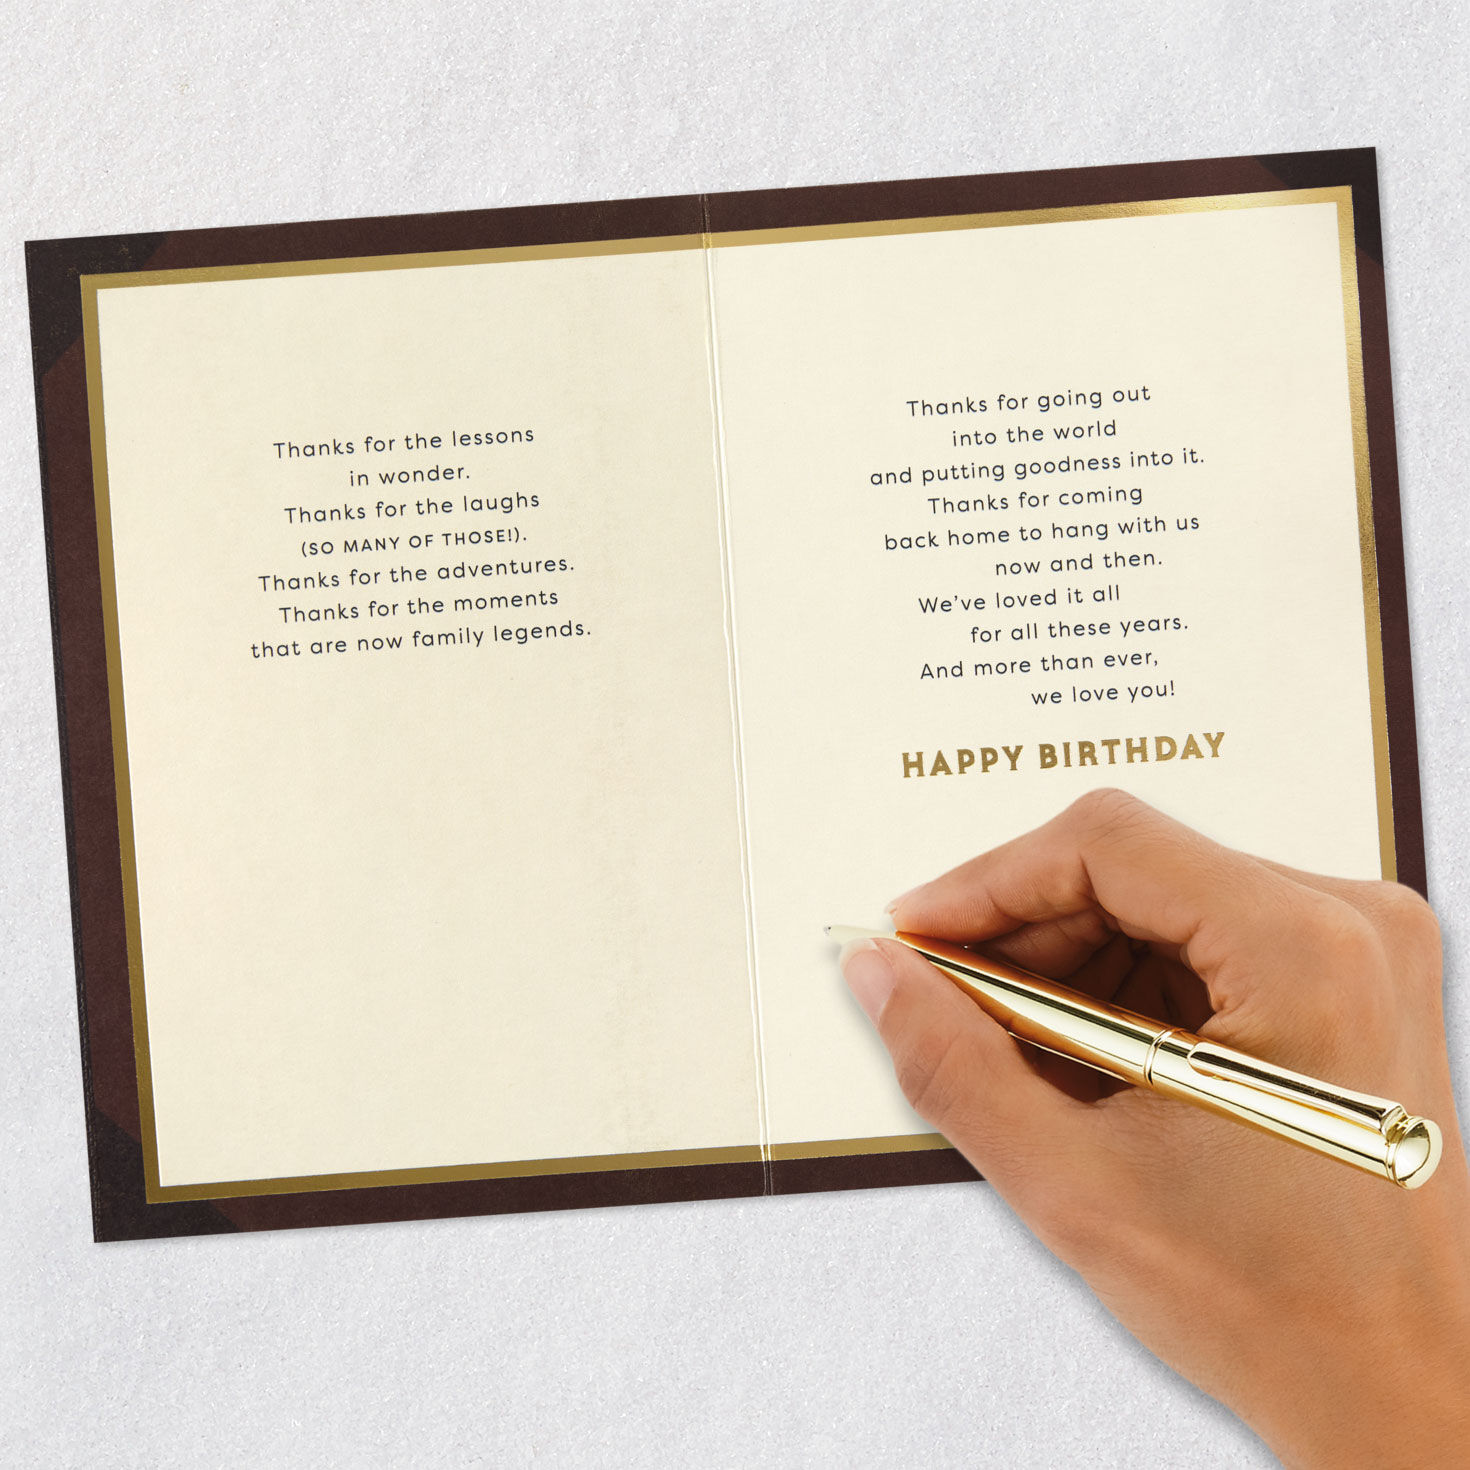 Thanks for the lessons
in wonder.
Thanks for the laughs
(SO MANY OF THOSE!).
Thanks for the adventures.
Thanks for the moments
that are now family legends.
Thanks for going out
into the world
and putting goodness into it.
Thanks for coming
back home to hang with us
now and then.
We've loved it all
for all these years.
And more than ever,
we love you!
HAPPY BIRTHDAY